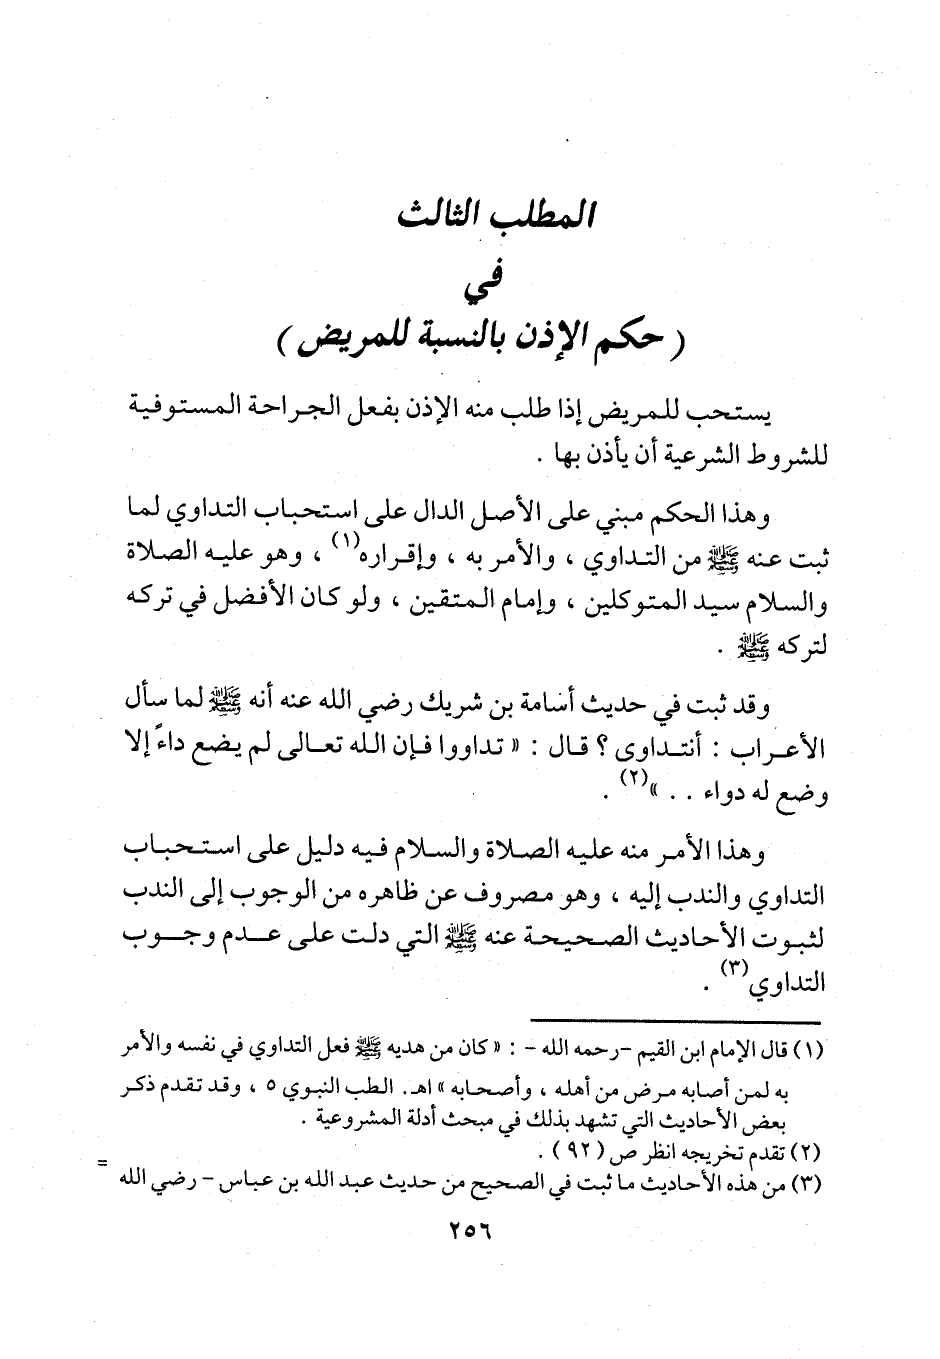 المطلب الثالث
في
( حكم الإذن بالنسبة للمريض )
يستحب للمريض إذا طلب منه الإذن بفعل الجراحة المستوفية
للشروط الشرعية أن يأذن بها .
وهذا الحكم مبني على الأصل الدال على استحباب التداوي لما
ثبت عنه ﷺ من التداوي ، والأمر به ، وإقراره(١) ، وهو عليه الصلاة
والسلام سيد المتوكلين ، وإمام المتقين ، ولو كان الأفضل في تركه
لتركه ﷺ .
وقد ثبت في حديث أسامة بن شريك رضي الله عنه أنه ﷺ لما سأل
الأعراب : أنتداوى ؟ قال : « تداووا فإن الله تعالى لم يضع داءً إلا
وضع له دواء . . »(٢) .
وهذا الأمر منه عليه الصلاة والسلام فيه دليل على استحباب
التداوي والندب إليه ، وهو مصروف عن ظاهره من الوجوب إلى الندب
لثبوت الأحاديث الصحيحة عنه ﷺ التي دلت على عدم وجوب
التداوي(٣) .
(١) قال الإمام ابن القيم -رحمه الله - : « كان من هديه ﷺ فعل التداوي في نفسه والأمر
به لمن أصابه مرض من أهله ، وأصحابه » اهـ. الطب النبوي ٥ ، وقد تقدم ذكر
بعض الأحاديث التي تشهد بذلك في مبحث أدلة المشروعية .
(٢) تقدم تخريجه انظر ص ( ٩٢ ) .
(٣) من هذه الأحاديث ما ثبت في الصحيح من حديث عبد الله بن عباس - رضي الله =
٢٥٦